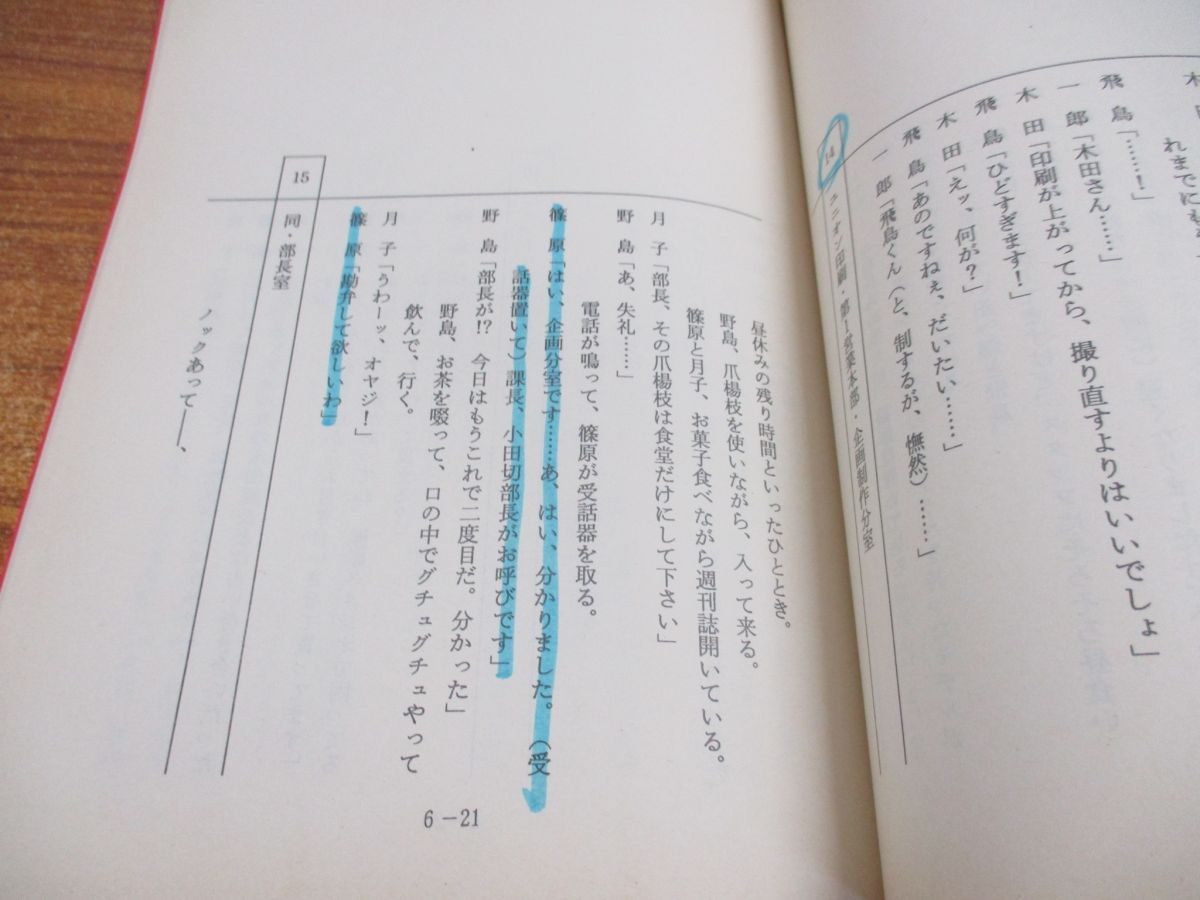 れまでにも
飛鳥「……！」
一郎「木田さん……」
木田「印刷が上がってから、撮り直すよりはいいでしょ」
飛鳥「ひどすぎます！」
木田「えッ、何が？」
飛鳥「あのですねぇ、だいたい……」
一郎「飛鳥くん（と、制するが、憮然）……」
14
ユニオン印刷・第1営業本部・企画制作分室
昼休みの残り時間といったひととき。
野島、爪楊枝を使いながら、入って来る。
篠原と月子、お菓子食べながら週刊誌開いている。
月子「部長、その爪楊枝は食堂だけにして下さい」
野島「あ、失礼……」
電話が鳴って、篠原が受話器を取る。
篠原「はい、企画分室です……あ、はい、分かりました。（受
話器置いて）課長、小田切部長がお呼びです」
野島「部長が!?　今日はもうこれで二度目だ。分かった」
野島、お茶を啜って、口の中でグチュグチュやって
飲んで、行く。
月子「うわーッ、オヤジ！」
篠原「勘弁して欲しいわ」
15
同・部長室
ノックあって――、
6－21